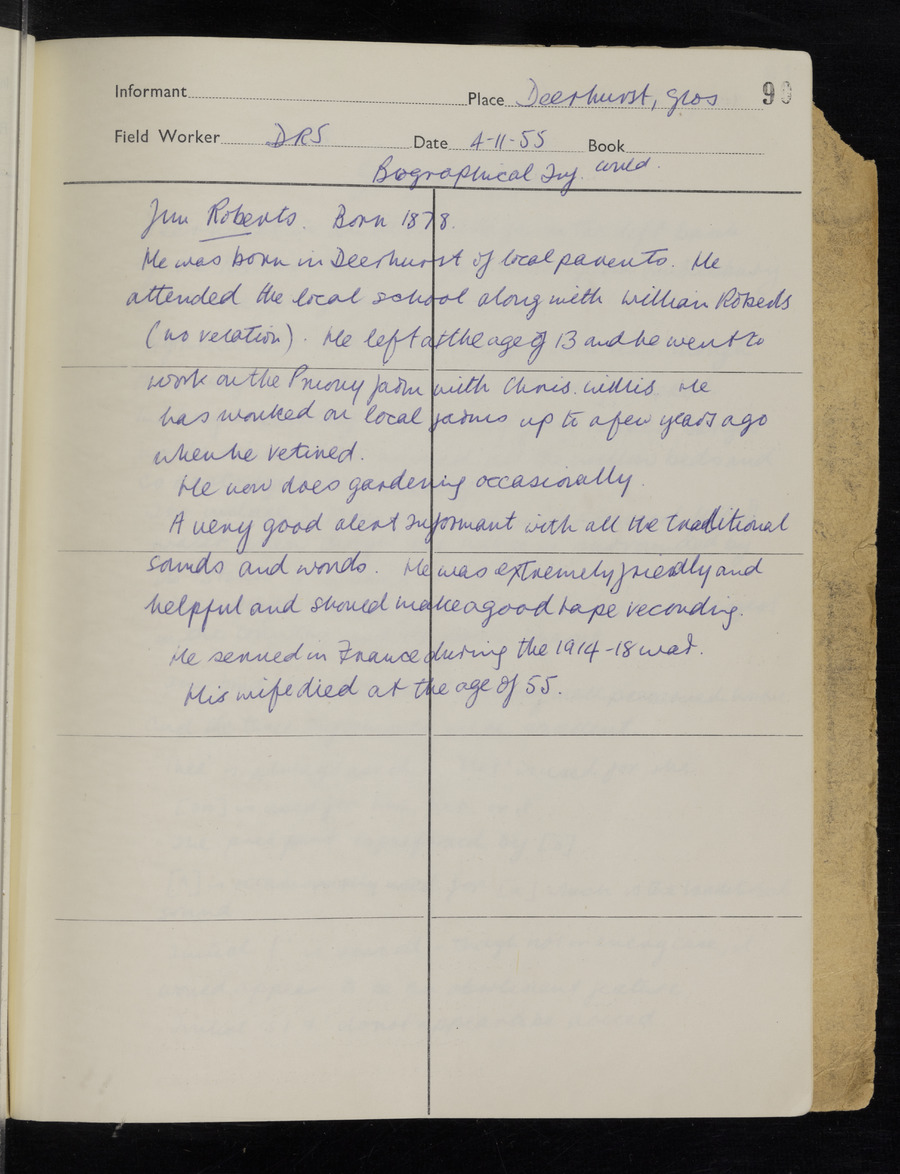 Informant Place Deerhurst, Glos 90
Field Worker DRS Date 4-11-55 Book
Biographical Inf. contd.
Jim Roberts. Born 1878.
He was born in Deerhurst of local parents. He
attended the local school along with William Roberts
(no relation). He left at the age of 13 and he went to
work on the Priory farm with Chris. Willis. He
has worked on local farms up to a few years ago
when he retired.
He now does gardening occasionally.
A very good alert informant with all the traditional
sounds and words. He was extremely friendly and
helpful and should make a good tape recording.
He served in France during the 1914-18 war.
His wife died at the age of 55.